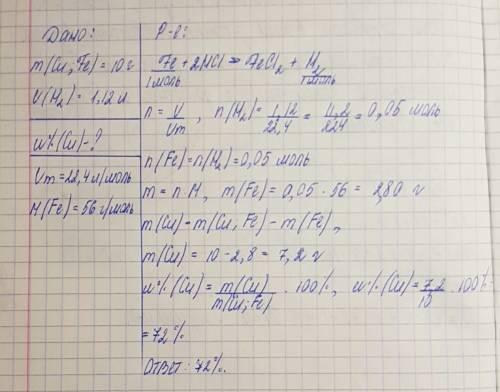 Дано:
m(Cu, Fe) = 10 г
V(H₂) = 1,12 л
ω%(Cu) - ?
Vm = 22,4 л/моль
M(Fe) = 56 г/моль
Р-е:
Fe + 2HCl = FeCl₂ + H₂
1 моль 1 моль
n = V/Vm, n(H₂) = 1,12/22,4 = 11,2/224 = 0,05 моль
n(Fe) = n(H₂) = 0,05 моль
m = n · M, m(Fe) = 0,05 · 56 = 2,80 г
m(Cu) = m(Cu, Fe) - m(Fe),
m(Cu) = 10 - 2,8 = 7,2 г
ω%(Cu) = m(Cu)/m(Cu; Fe) · 100%, ω%(Cu) = 7,2/10 · 100% =
= 72%
Ответ: 72%.